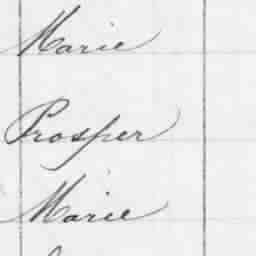 Marie
Prosper
Marie